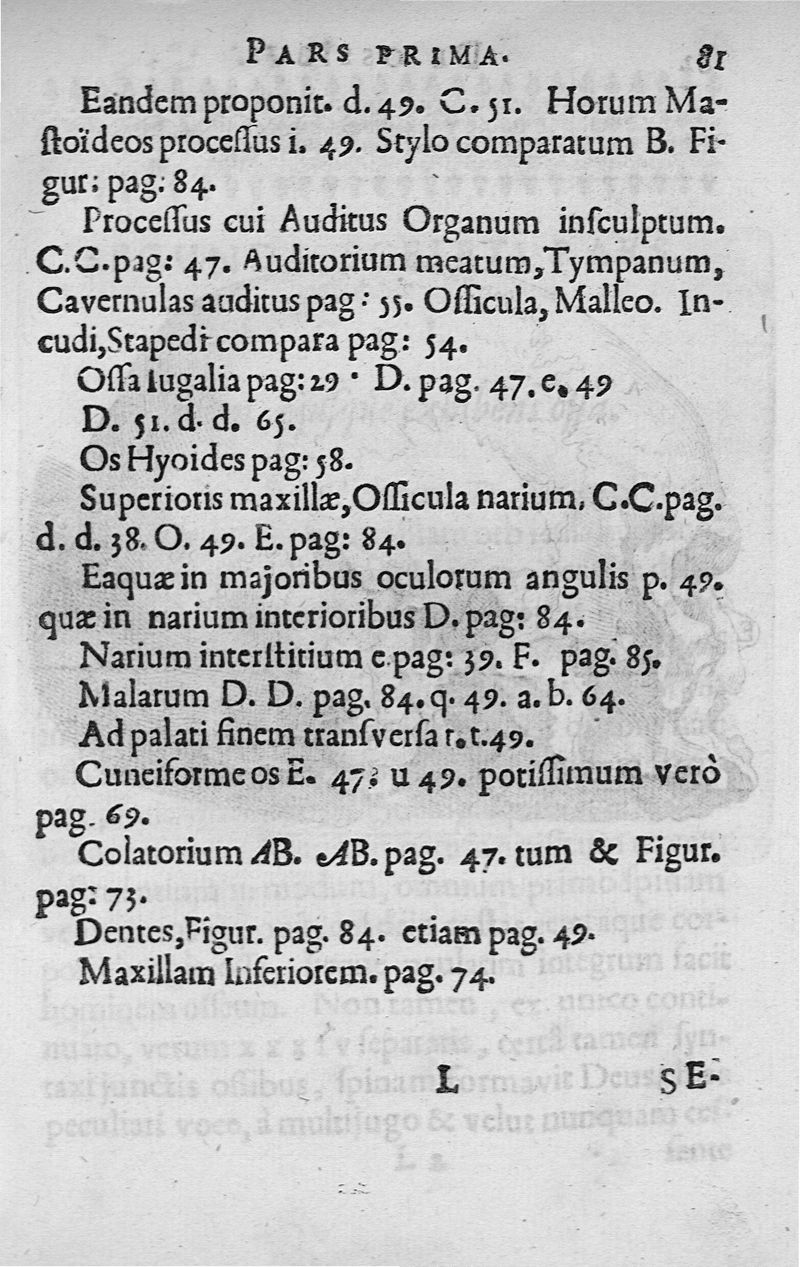 PARS PRIMA. 81
Eandem proponit. d. 49. C. 51. Horum Ma-
ſtoïdeos proceſſus i. 49. Stylo comparatum B. Fi-
gur: pag: 84.
Proceſſus cui Auditus Organum inſculptum.
C.C.pag: 47. Auditorium meatum,Tympanum,
Cavernulas auditus pag: 55. Oſſicula, Malleo. In-
cudi,Stapedi compara pag: 54.
Oſſa Iugalia pag: 29 · D. pag. 47. e. 49
D. 51. d. d. 65.
Os Hyoides pag: 58.
Superioris maxillæ,Oſſicula narium. C.C.pag.
d. d. 38. O. 49. E. pag: 84.
Ea quæ in majoribus oculorum angulis p. 49.
quæ in narium interioribus D. pag: 84.
Narium interſtitium e pag: 39. F. pag. 85.
Malarum D. D. pag. 84. q. 49. a. b. 64.
Ad palati finem tranſverſa r. t. 49.
Cuneiforme os E. 47. u 49. potiſſimum verò
pag. 69.
Colatorium AB. AB. pag. 47. tum & Figur.
pag: 73.
Dentes,Figur. pag. 84. etiam pag. 49.
Maxillam Inferiorem. pag. 74.
L SE-